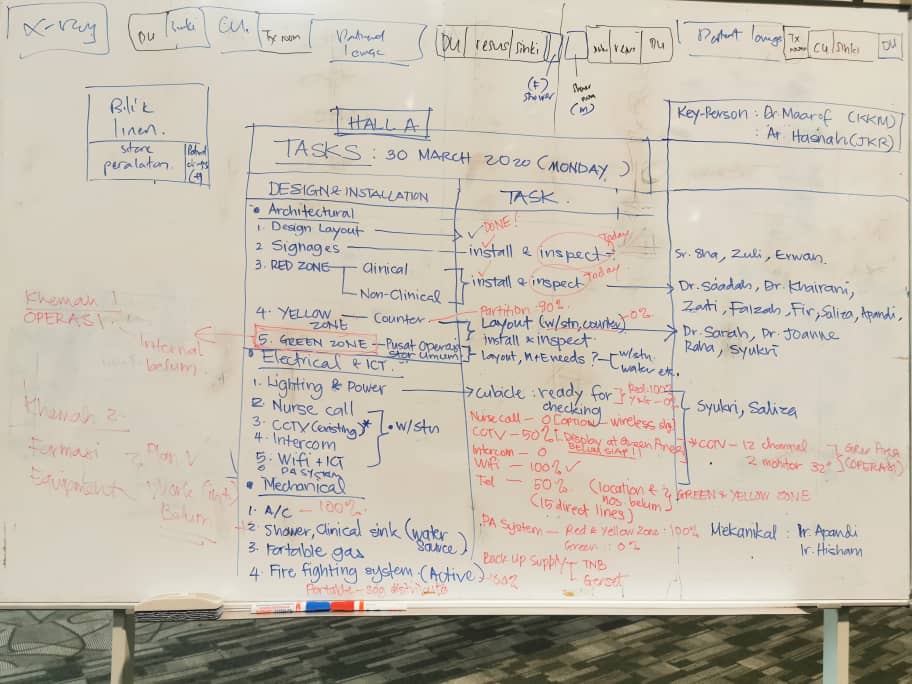 X-ray
DU
Sinki
CU.
Tx room
Patient lounge
DU / resus / sinki
(F) shower
shower room (M)
resus
DU
Patient lounge
Tx room
CU / sinki
DU
Bilik linen.
store peralatan.
Key-Person : Dr. Maarof (KKM)
: Ar. Hasnah (JKR)
HALL A
TASKS : 30 MARCH 2020 (MONDAY)
DESIGN & INSTALLATION
TASK.
• Architectural
1. Design Layout
✓ DONE!
2 Signages
install & inspect
Today
Sr. Sha, Zuli, Erwan.
3. RED ZONE
Clinical
Non-Clinical
install & inspect
Today
Dr. Saadah, Dr. Khairani,
Zati, Faizah, Fir, Saliza, Apandi,
Partition - 90%.
4. YELLOW ZONE
Counter
Layout (w/stn, counter)
- 0%.
Install & inspect.
Dr. Sarah, Dr. Joanne
Raha, Syukri
5. GREEN ZONE - Pusat Operasi
Stor Umum
Layout, M+E needs?
w/stn.
water etc.
Khemah 1
OPERASI
Internal
belum.
• Electrical & ICT.
1. Lighting & Power
cubicle : ready for
checking
Red. 100%
Yell - 0%
Syukri, Saliza
2. Nurse call
3. CCTV (existing)*
4. Intercom
5. Wifi + ICT
6 PA SYSTEM
• w/stn
Nurse call - 0 (OPTION - wireless
CCTV - 50% [Display at Green Area]
BELUM SIAP!!
*CCTV - 12 channel
2 monitor 32"
Green Area
(OPERASI)
Intercom - 0
Wifi - 100% ✓
Tel - 50%
(location &
nos. belum)
(15 direct lines)
GREEN & YELLOW ZONE
Khemah 2
Farmasi
Equipment
Plan ✓
Work
Belum
• Mechanical
1. A/C - 100%.
2. Shower, Clinical sink (water
source)
3. Portable gas
4. Fire fighting system (Active)
100%
Portable - sdg distribute
PA System - Red & Yellow Zone : 100%
Green : 0%
Mekanikal : Ir. Apandi
Ir. Hisham
Back up supply
TNB
Genset